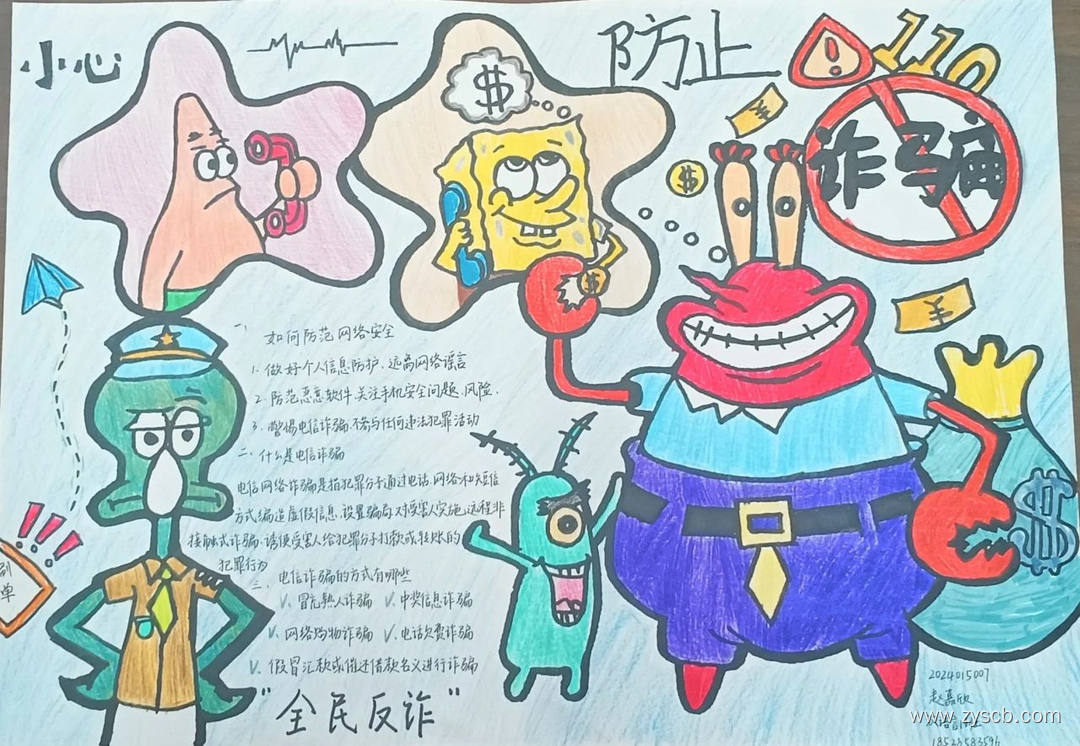 小心
防止
110
诈骗
刷单
一、如何防范网络安全
1. 做好个人信息防护、远离网络谣言
2. 防范恶意软件、关注手机安全问题、风险.
3. 警惕电信诈骗.不参与任何违法犯罪活动
二、什么是电信诈骗
电信网络诈骗是指犯罪分子通过电话、网络和短信
方式编造虚假信息.设置骗局对受害人实施远程非
接触式诈骗.诱使受害人给犯罪分子打款或转账的
犯罪行为
三、电信诈骗的方式有哪些
V. 冒充熟人诈骗 V. 中奖信息诈骗
V. 网络购物诈骗 V. 电话欠费诈骗
V. 假冒汇款或偿还借款名义进行诈骗
"全民反诈"
2024015007
赵嘉欣
www.zyscb.com